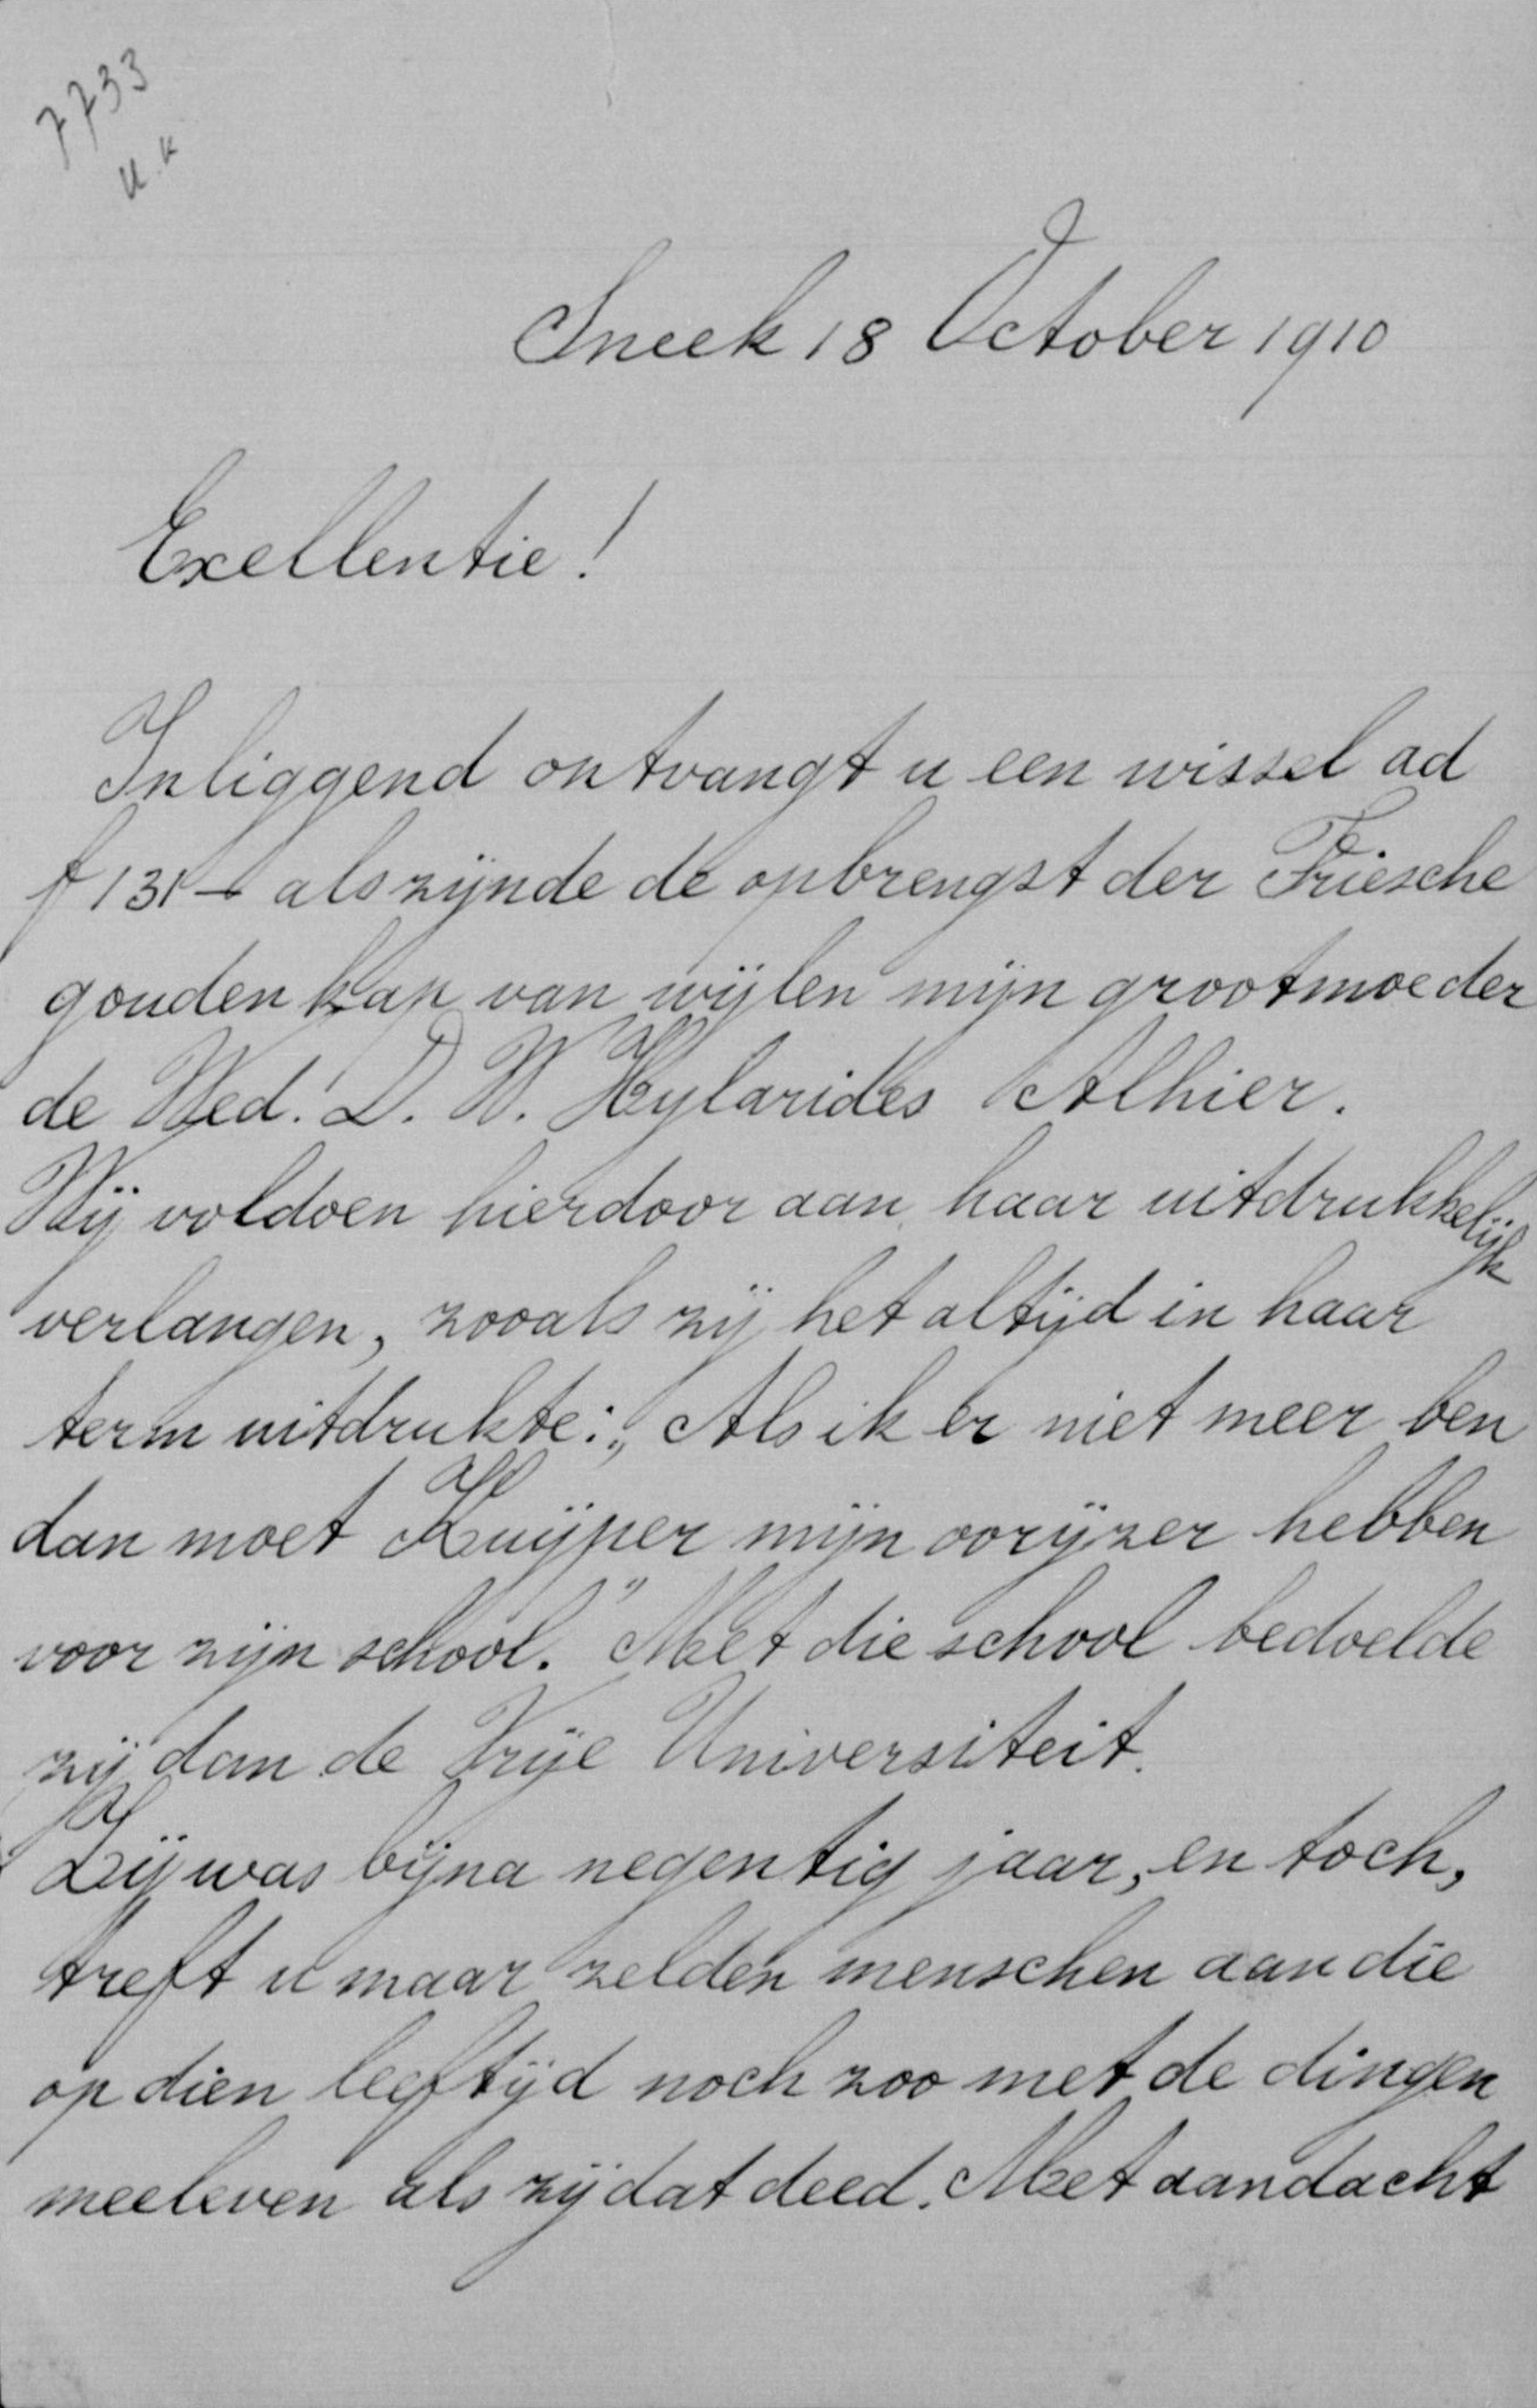 7733
Sneek 18 October 1910
Exellentie!
Inliggend ontvangt u een wissel ad
f 131 - als zijnde de opbrengst der Friesche
gouden kap van wijlen mijn grootmoeder
de Wed. D. W. Hylarides Alhier.
Wij voldoen hierdoor aan haar uitdrukkelijk
verlangen, zooals zij het altijd in haar
term uitdrukte: „Als ik er niet meer ben
dan moet Kuijper mijn oorijzer hebben
voor zijn school." Met die school bedoelde
zij dan de Vrije Universiteit.
Zij was bijna negentig jaar, en toch,
treft u maar zelden menschen aan die
op dien leeftijd noch zoo met de dingen
meeleven als zij dat deed. Met aandacht